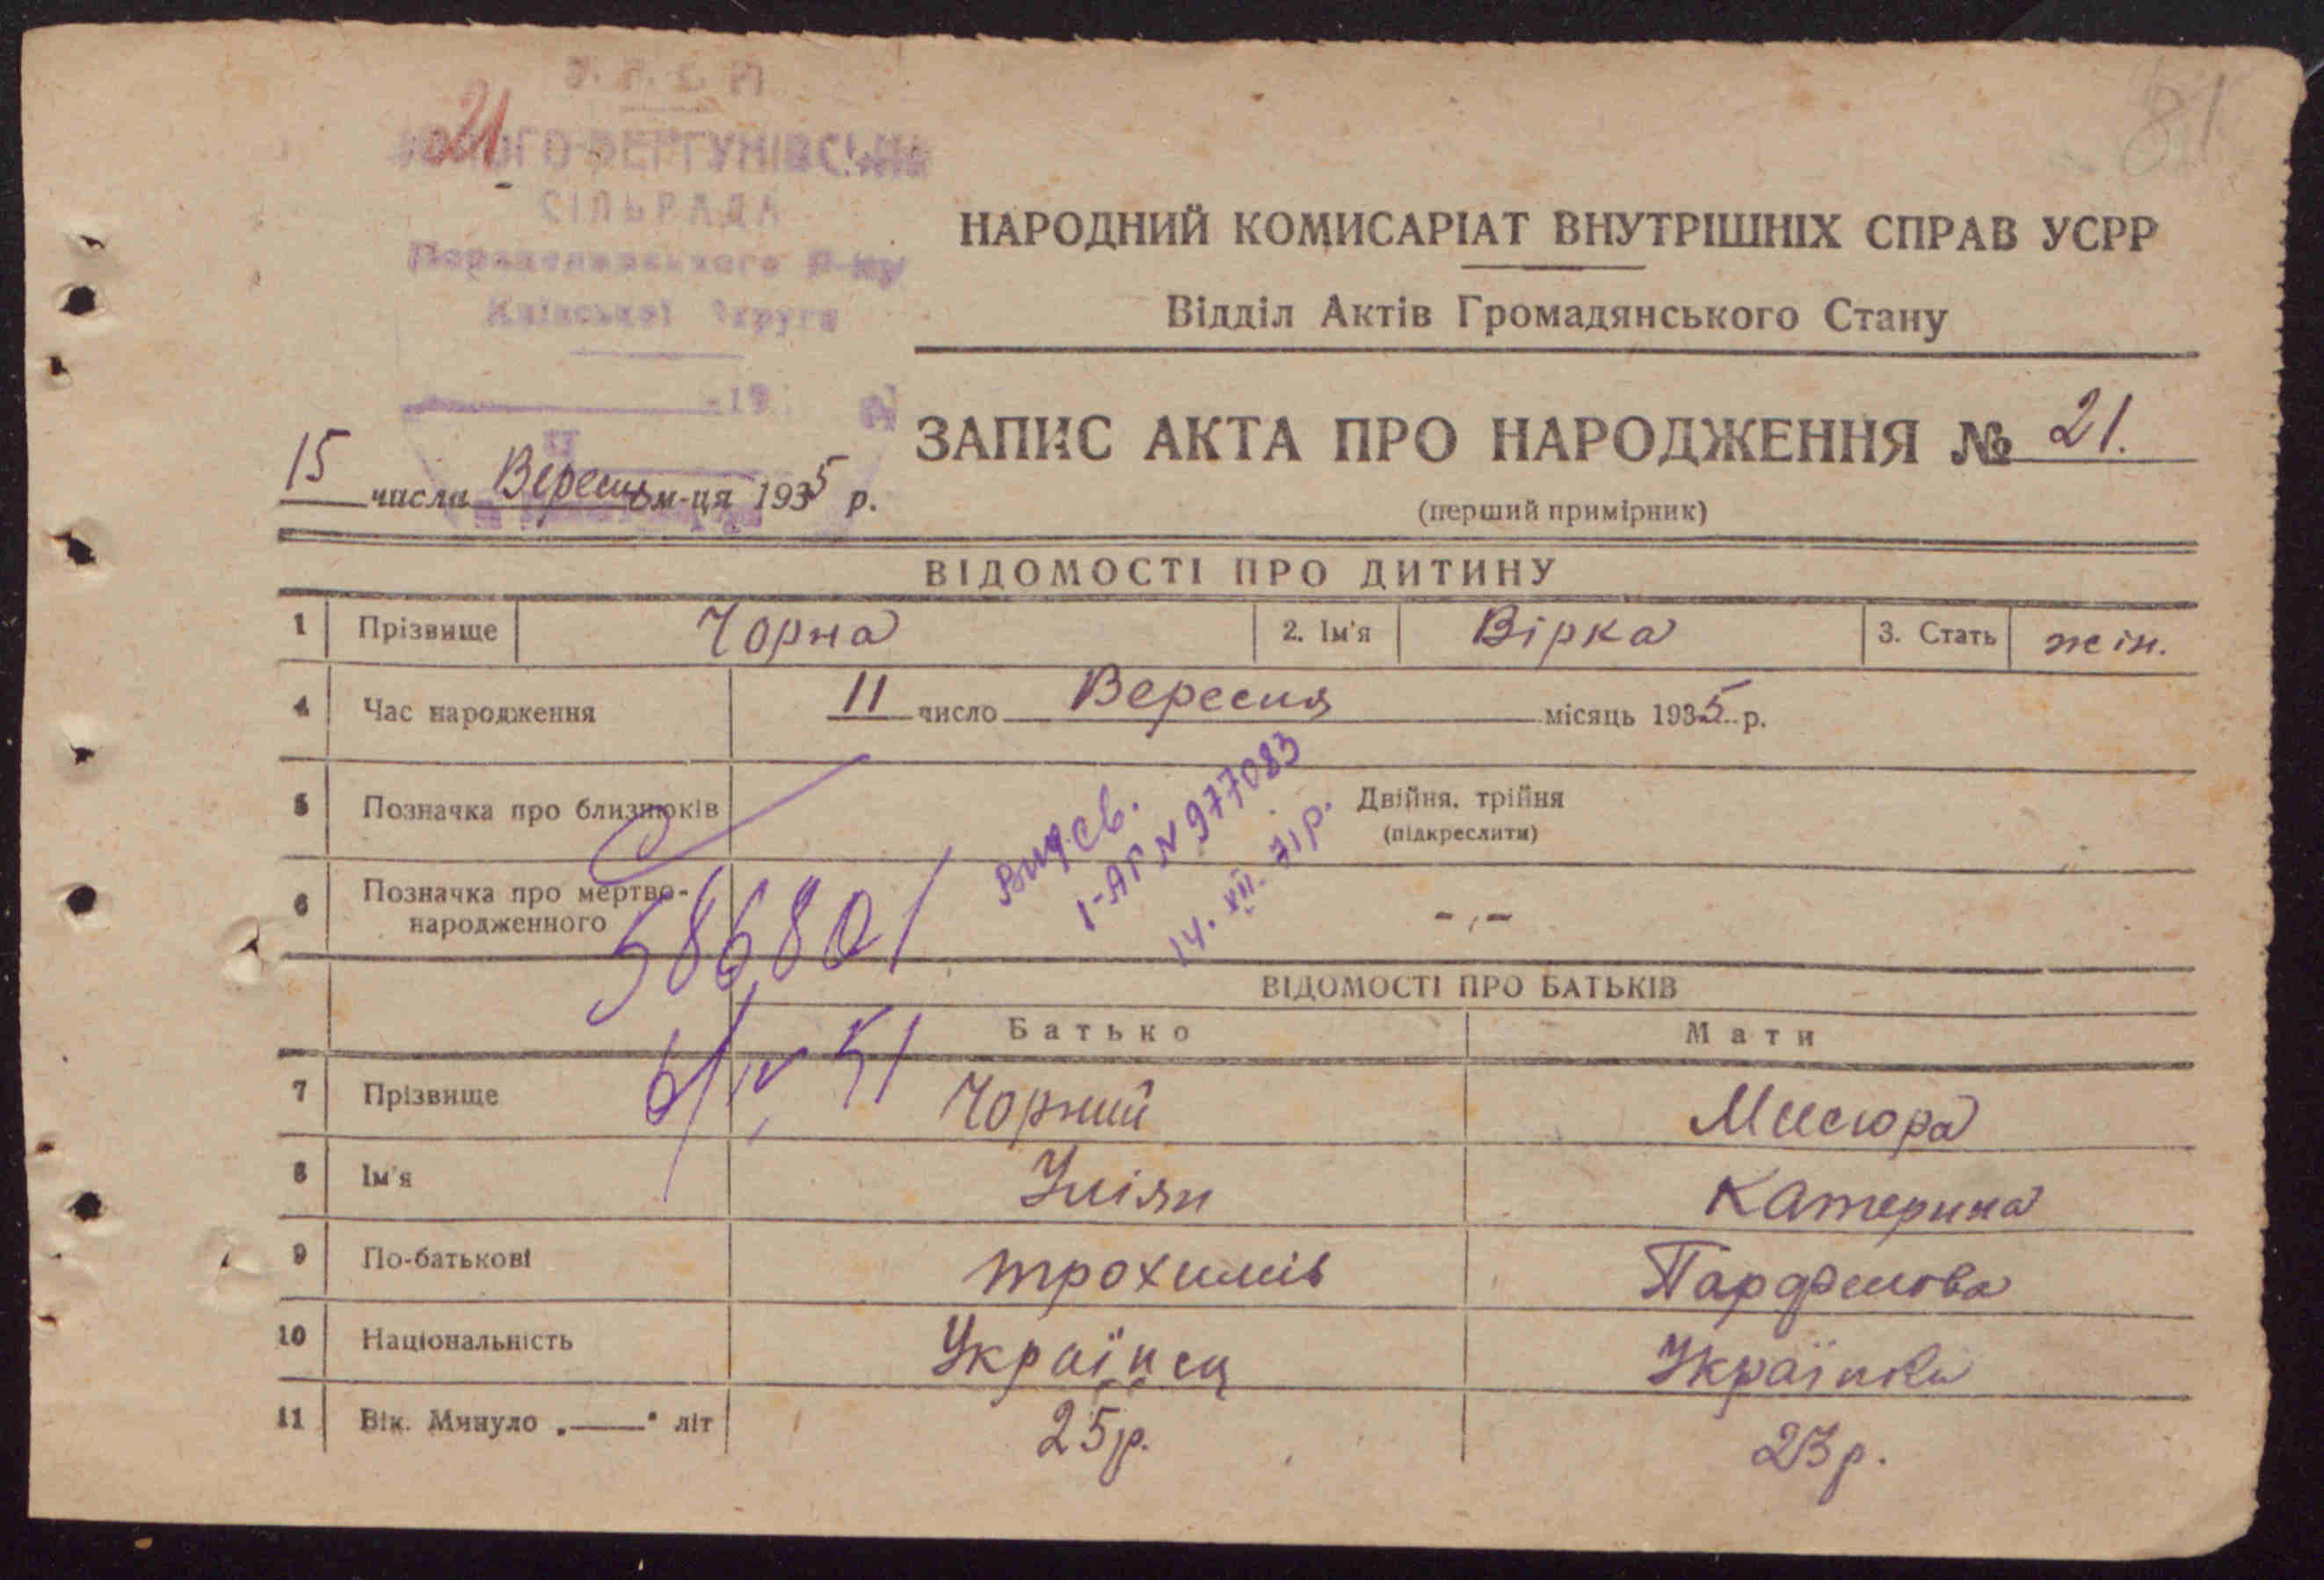 21
81
СІЛЬРАДА
НАРОДНИЙ КОМИСАРІАТ ВНУТРІШНІХ СПРАВ УСРР
Відділ Актів Громадянського Стану
ЗАПИС АКТА ПРО НАРОДЖЕННЯ № 21.
15 числа Вересня м-ця 1935 р.
(перший примірник)
ВІДОМОСТІ ПРО ДИТИНУ
1 Прізвище Чорна 2. Ім'я Вірка 3. Стать жін.
4 Час народження 11 число Вересня місяць 1935 р.
5 Позначка про близнюків Двійня, трійня
(підкреслити)
6 Позначка про мертво-
народженного - , -
Вид. св.
І-АР N 977083
14. XII. 71р.
586801
6/IV 51
ВІДОМОСТІ ПРО БАТЬКІВ
Батько Мати
7 Прізвище Чорний Мисюра
8 Ім'я Уліян Катерина
9 По-батькові трохимів
10 Національність Українец Українка
11 Вік. Минуло „——" літ 25р. 23р.